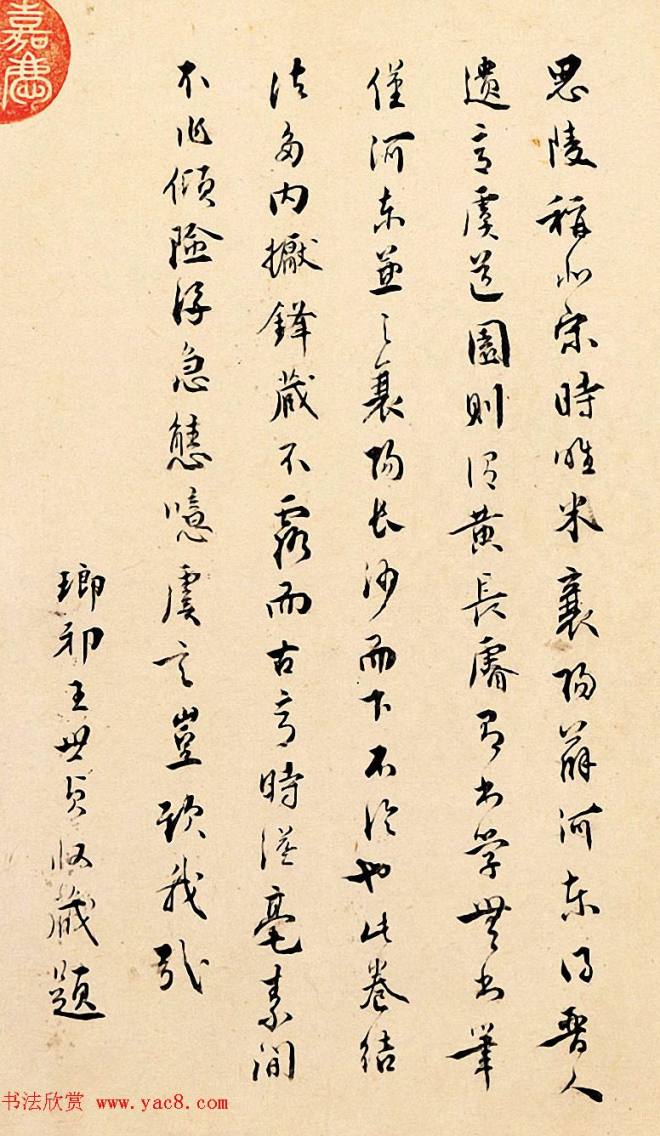 思陵稱北宋時唯米襄陽薛河東得晉人
遺意虞道園則謂黃長睿有書學無書筆
僅河東並之襄陽長沙而下不論也此卷結
法多內擫鋒藏不露而古意時溢毫素間
不作傾險浮急態噫虞言豈欺我哉
瑯邪王世貞收藏題
嘉
书法欣赏 www.yac8.com